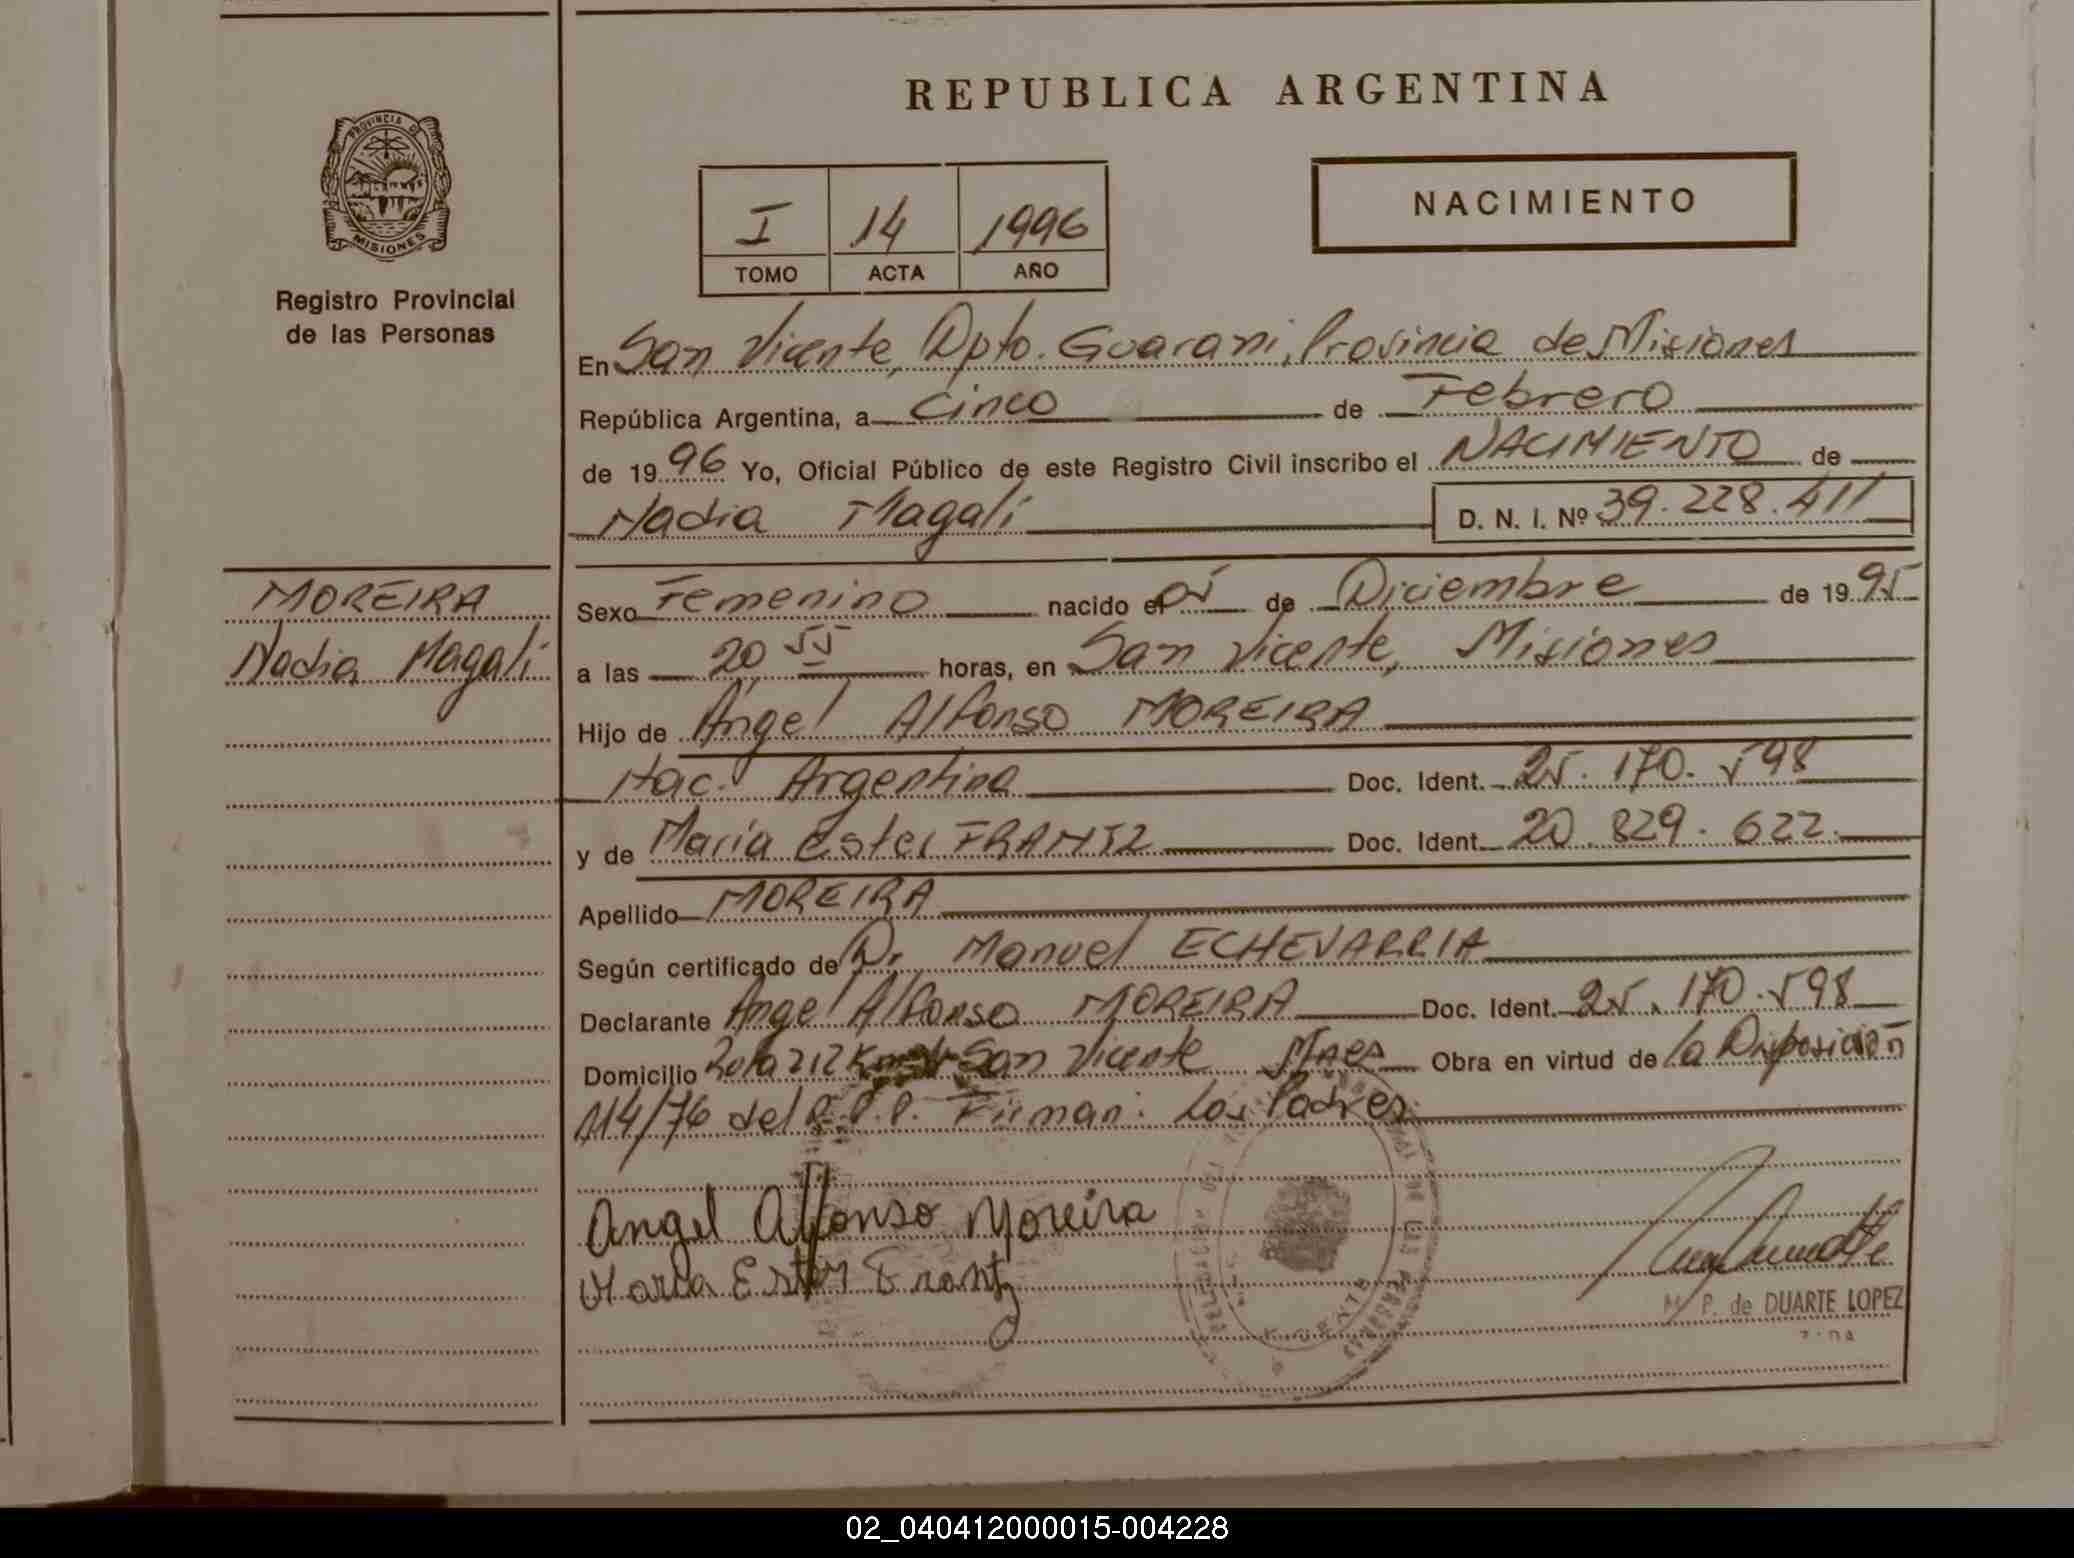 REPUBLICA ARGENTINA
PROVINCIA DE
MISIONES
Registro Provincial
de las Personas
I 14 1996
TOMO ACTA AÑO
NACIMIENTO
En San Vicente, Dpto. Guarani, Provincia de Misiones
República Argentina, a cinco de Febrero
de 1996 Yo, Oficial Público de este Registro Civil inscribo el NACIMIENTO de
Nadia Magali D. N. I. Nº 39.228.411
MOREIRA
Nadia Magali
Sexo Femenino nacido el 05 de Diciembre de 1995
a las 20 55 horas, en San Vicente, Misiones
Hijo de Angel Alfonso MOREIRA
Nac. Argentina Doc. Ident. 25.170.598
y de María Ester FRANTZ Doc. Ident. 20.829.622
Apellido MOREIRA
Según certificado de Dr. Manuel ECHEVARRIA
Declarante Angel Alfonso MOREIRA Doc. Ident. 25.170.598
Domicilio Ruta 212 San Vicente Mnes Obra en virtud de la Disposición
114/76 del R.P.P. Firman: Los Padres
Angel Alfonso Moreira
Maria Ester Frantz
M. P. de DUARTE LOPEZ
DE LAS PERSONAS
02_040412000015-004228